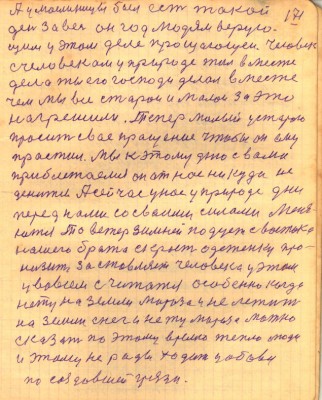 171
А у малинишы был ест такой
ден за вес он год людям верую-
щим у этом деле прощающеи. Человек
с человеком у природе жил вместе
дела ты его господи делал вместе
чем мы вси старои и малои за это
нагрешили. Тепер малыи у старого
просит свае пращение чтобы он ему
прастил. Мы к этому дню с вами
приближаемся он от нас никуда не
денитця А сейчас у нас у природе дни
перед нами со своими силами Меня
ютця То ветер зимней подует с востока
нашего брата скрозь одеженку про-
низит, заставляет человека у этом
у вовсем считатся особенно когда
нету на земли мороза и не лежит
на земли снег и нету мороза можно
сказат по этому время тепло люди
и этому не рады ходит у обови
по создавшей грязи.